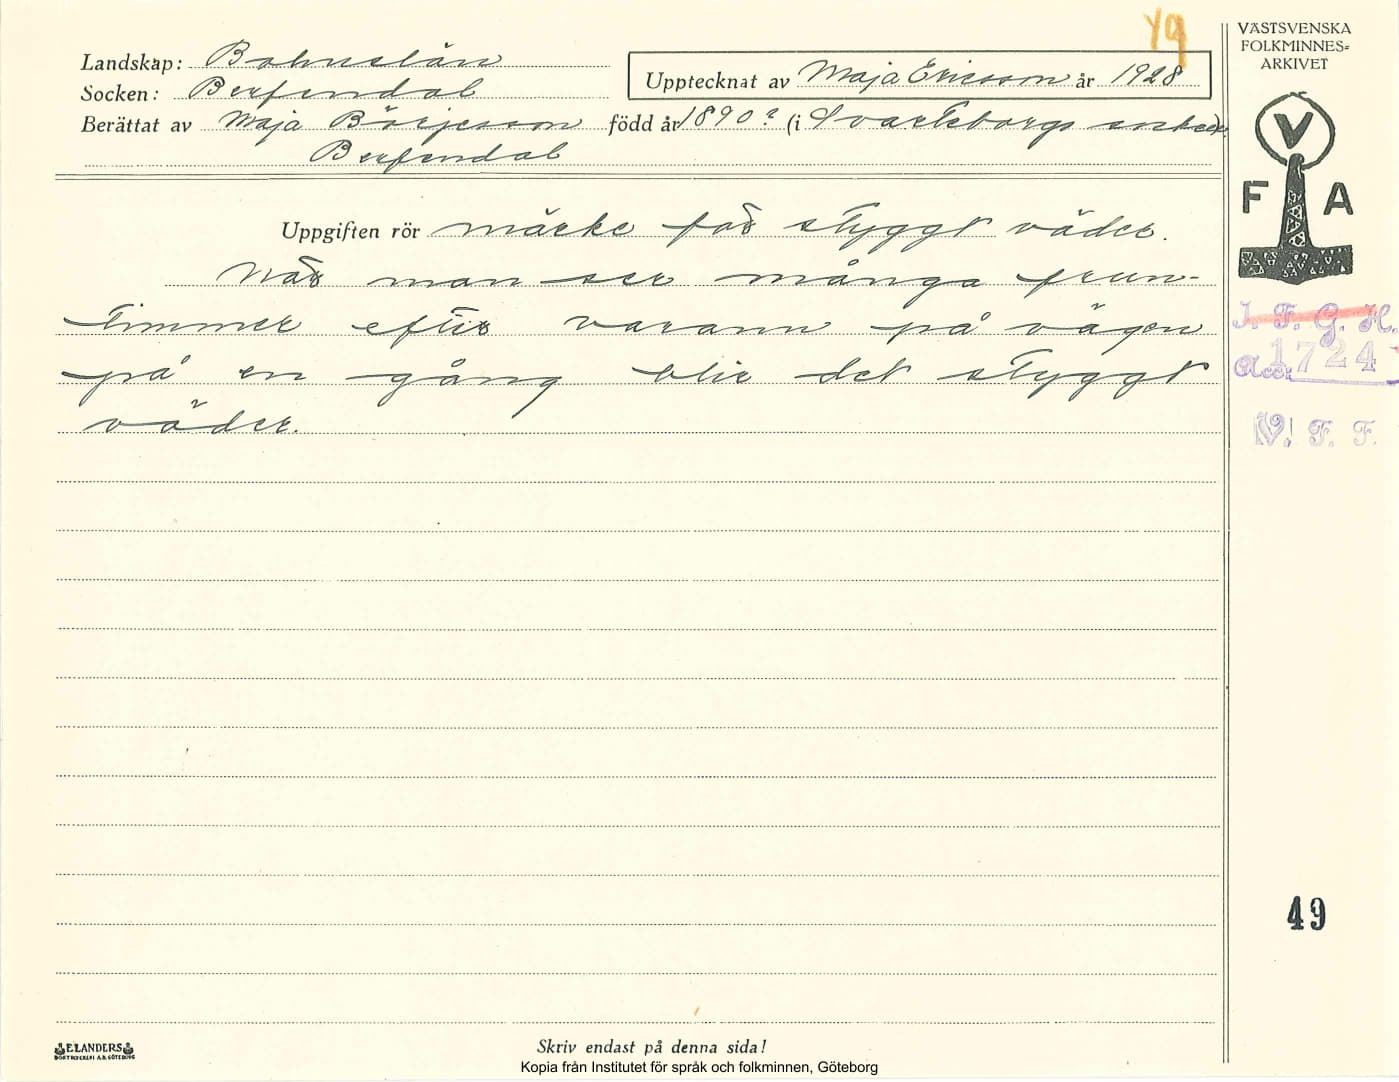 Y9
VÄSTSVENSKA
FOLKMINNES=
ARKIVET
Landskap: Bohuslän
Upptecknat av Maja Ericsson år 1928
Socken: Berfendal
Berättat av Maja Börjesson född år 1890? (i Svarteborgs
Berfendal
V
F A
Uppgiften rör märke för styggt väder.
När man ser många frun-
timmer efter varann på vägen
på en gång blir det styggt
väder.
I. F. G. H.
Acc: 1724
V. F. F.
49
ELANDERS
BOKTRYCKERI A.B. GÖTEBORG
Skriv endast på denna sida!
Kopia från Institutet för språk och folkminnen, Göteborg